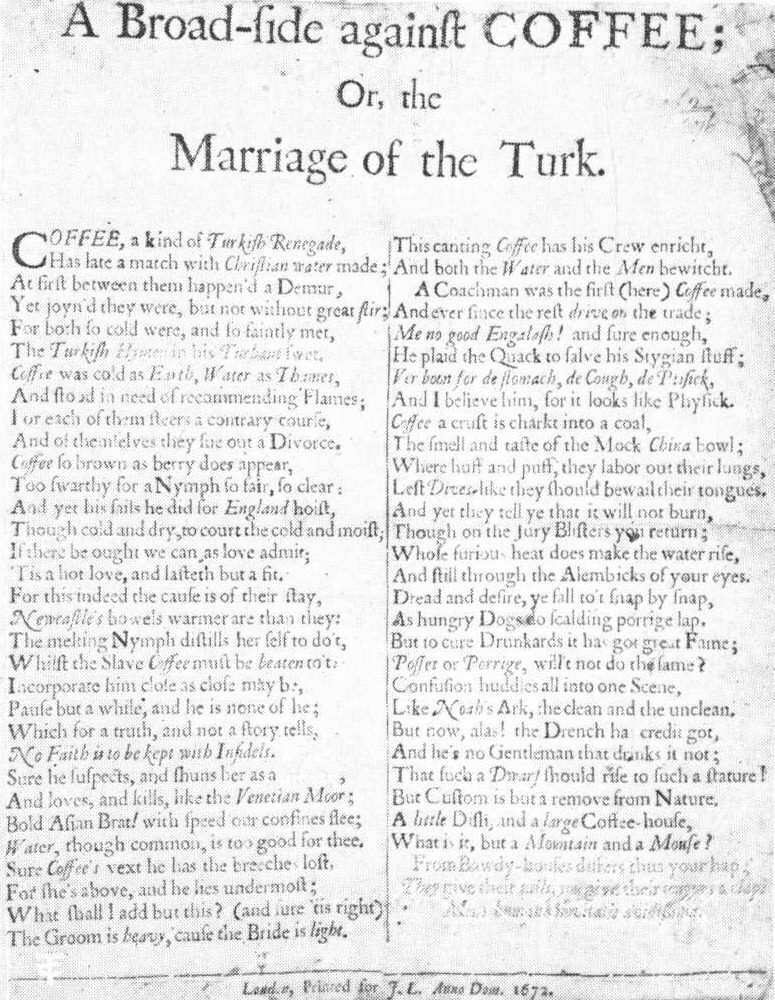 A Broad-ſide againſt COFFEE;
Or, the
Marriage of the Turk.
COFFEE, a kind of Turkiſh Renegade,
Has late a match with Chriſtian water made;
At firſt between them happen'd a Demur,
Yet joyn'd they were, but not without great ſtir;
For both ſo cold were, and ſo faintly met,
The Turkiſh Hymen in his Turbant ſwet.
Coffee was cold as Earth, Water as Thames,
And ſtood in need of recommending Flames;
For each of them ſteers a contrary courſe,
And of themſelves they ſue out a Divorce.
Coffee ſo brown as berry does appear,
Too ſwarthy for a Nymph ſo fair, ſo clear:
And yet his ſails he did for England hoiſt,
Though cold and dry, to court the cold and moiſt;
If there be ought we can, as love admit;
'Tis a hot love, and laſteth but a fit.
For this indeed the cauſe is of their ſtay,
Newcaſtle's bowels warmer are than they:
The melting Nymph diſtills her ſelf to do't,
Whilſt the Slave Coffee muſt be beaten to't:
Incorporate him cloſe as cloſe may be,
Pauſe but a while, and he is none of he;
Which for a truth, and not a ſtory tells,
No Faith is to be kept with Infidels.
Sure he ſuſpects, and ſhuns her as a ,
And loves, and kills, like the Venetian Moor;
Bold Aſian Brat! with ſpeed our confines flee;
Water, though common, is too good for thee.
Sure Coffee's vext he has the breeches loſt,
For ſhe's above, and he lies undermoſt;
What ſhall I add but this? (and ſure 'tis right)
The Groom is heavy, 'cauſe the Bride is light.
This canting Coffee has his Crew enricht,
And both the Water and the Men bewitcht.
A Coachman was the firſt (here) Coffee made,
And ever ſince the reſt drive on the trade;
Me no good Engalaſh! and ſure enough,
He plaid the Quack to ſalve his Stygian ſtuff;
Ver boon for de ſtomach, de Cough, de Ptiſick,
And I believe him, for it looks like Phyſick.
Coffee a cruſt is charkt into a coal,
The ſmell and taſte of the Mock China bowl;
Where huff and puff, they labor out their lungs,
Leſt Dives-like they ſhould bewail their tongues.
And yet they tell ye that it will not burn,
Though on the Jury Bliſters you return;
Whoſe furious heat does make the water riſe,
And ſtill through the Alembicks of your eyes.
Dread and deſire, ye fall to't ſnap by ſnap,
As hungry Dogs do ſcalding porrige lap.
But to cure Drunkards it has got great Fame;
Poſſet or Porrige, will't not do the ſame?
Confuſion huddles all into one Scene,
Like Noah's Ark, the clean and the unclean.
But now, alas! the Drench has credit got,
And he's no Gentleman that drinks it not;
That ſuch a Dwarf ſhould riſe to ſuch a ſtature!
But Cuſtom is but a remove from Nature.
A little Diſh, and a large Coffee-houſe,
What is it, but a Mountain and a Mouſe?
From Bawdy-houſes differs thus your hap;
They give their tails, you give their tongues a clap.
London, Printed for J. L. Anno Dom. 1672.